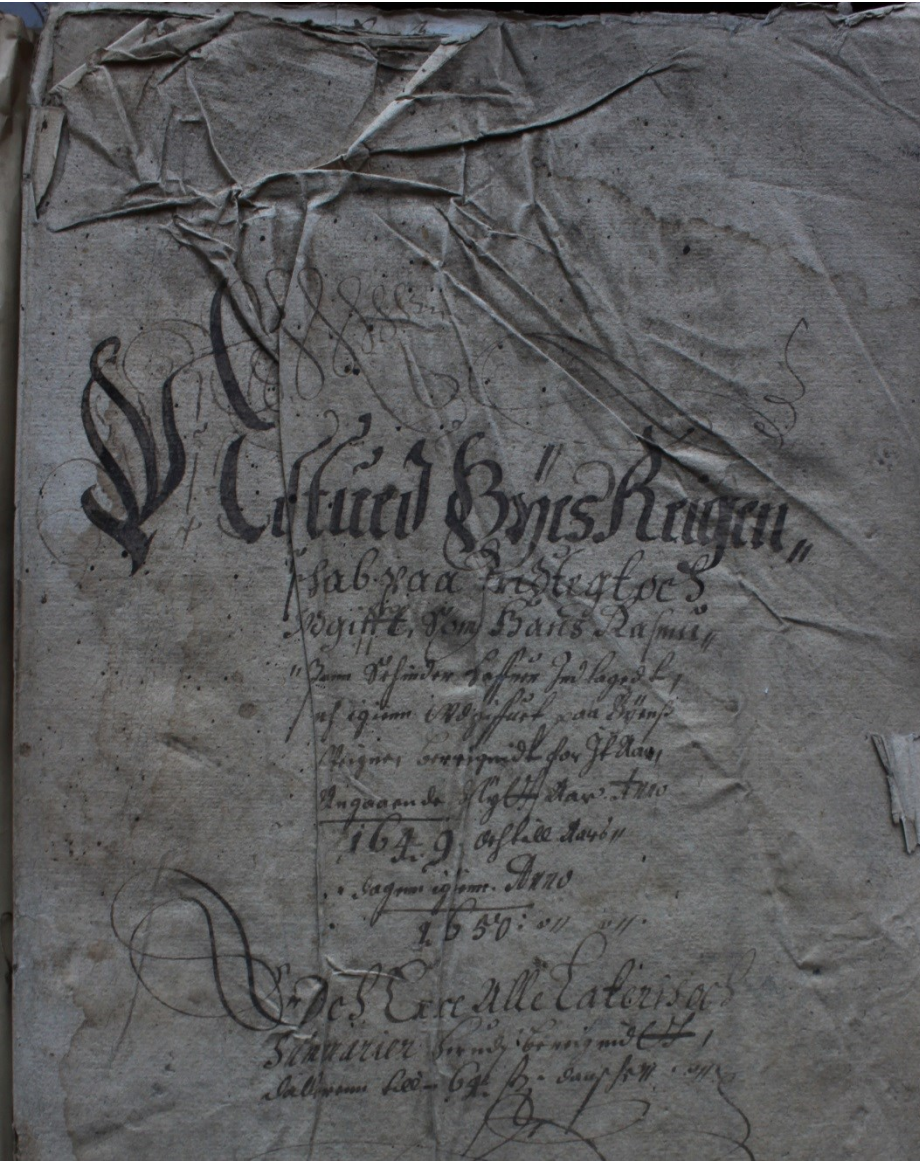 Nestued Byes Reigen„
schab paa Indtegt och
Wdgifft, Som Hans Rasmu„
„ Haffuer Indtaget
och igienn Wdgiffuet paa Byens
Weigne, berregnidt for Jt Aar,
Angaaende Nyt Aar Anno
1649 och till Aars„
dagenn igienn. Anno
1650
Er och Ere Alle Lateris och
Summarier berregnid
dallerenn till 64 danske